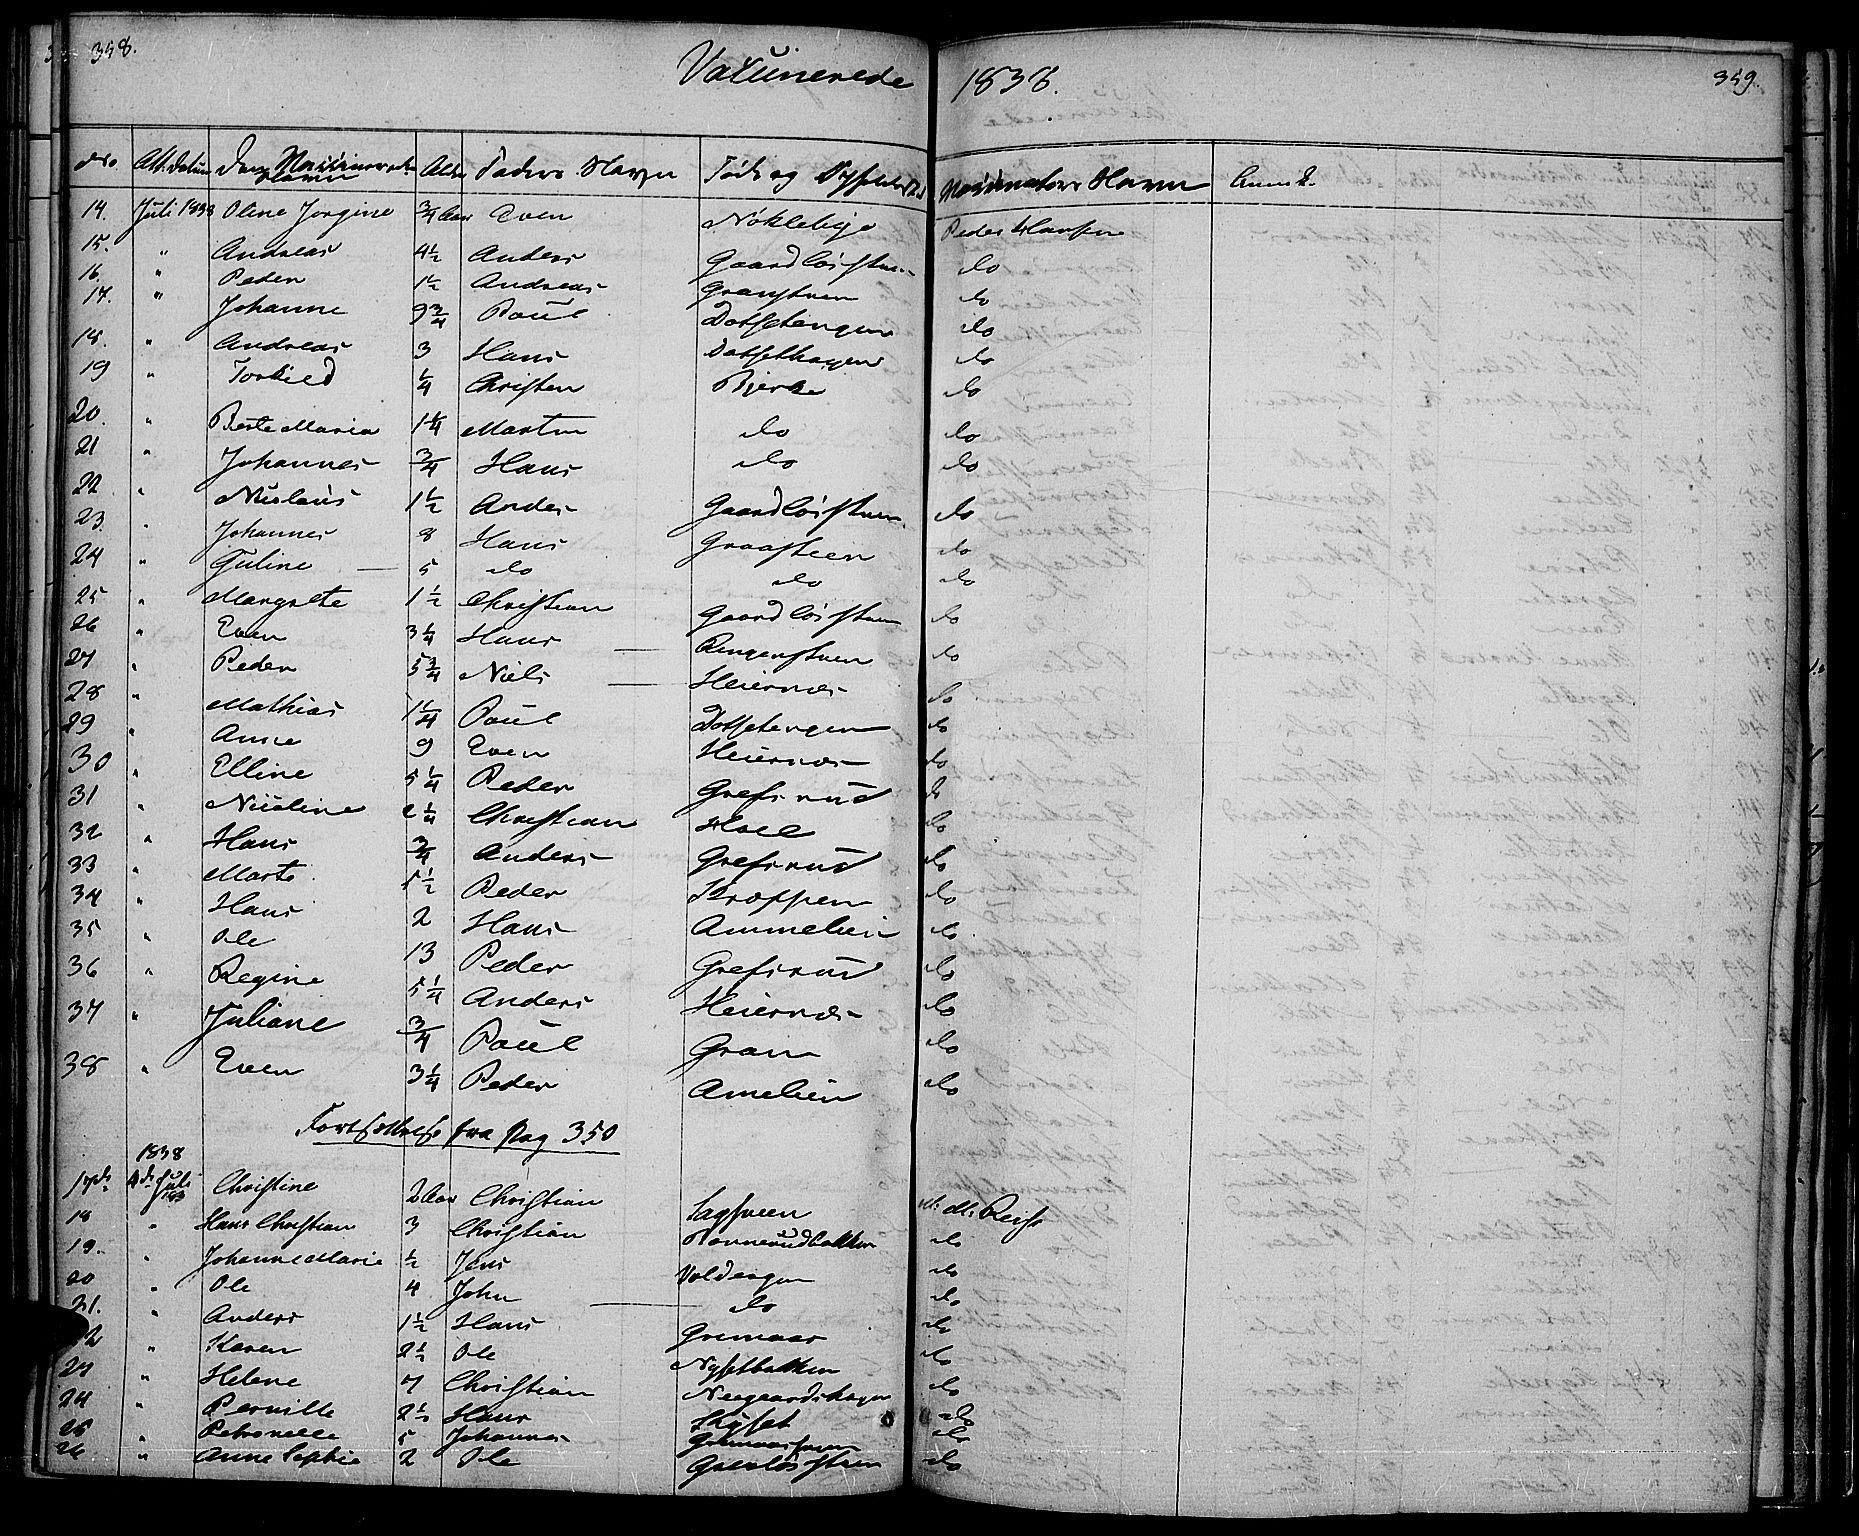 358.
Vaxinerede 1838.
359.
No. Att. Datum Navn Alder Faders Navn Føde og Navn Anm.
14. Juli 1838 Oline Jorgine 3/4 Aar Even Nøklebye Peder Hansen
15. " Andreas 4 1/2 Anders Gaardløsstuen do
16. " Peder 1 1/2 Andreas Granstuen do
17. " Johanne 9 3/4 Poul Dotsetengen do
18. " Andreas 3 Hans Dotsethagen do
19 " Torkild 1/4 Christen Bjerke do
20. " Berte Maria 1 1/4 Martin do do
21 " Johannes 3/4 Hans do do
22. " Niclaus 1 1/2 Anders Gaardløsstuen do
23. " Johannes 8 Hans Graasteen do
24 " Guline 5 do do do
25 " Margrete 1 1/2 Christian Gaardløsstuen do
26 " Even 3 1/4 Hans Ringenstuen do
27 " Peder 5 3/4 Niels Heiernæs do
28 " Mathias 1 1/4 Poul Dotsetengen do
29 " Anne 9 Even Heiernæs do
30 " Elline 5 1/4 Peder Grefsrud do
31 " Nicoline 2 1/4 Christian Hoel do
32 " Hans 3/4 Anders Grefsrud do
33 " Marte 5 1/2 Peder Kroppen do
34 " Hans 2 Hans Ammelien do
35 " Ole 13 Peder Grefsrud do
36 " Regine 5 1/4 Anders Heiernæs do
37 " Juliane 3/4 Poul Gran do
38 " Even 3 1/4 Peder Amelien do
Fortsættelse fra Pag 350
1838
17de 4de Juli Christine 2 Aar Christian Sagsveen Reise
18 " Hans Christian 3 Christian do
19. " Johanne Marie 1/2 Jens Voldengen do
20 " Ole 4 John do do
21. " Anders 1 1/2 Hans Gremaar do
22 " Karen 2 1/2 Ole Nysetbakken do
23 " Helene 7 Christian Neegaardshagen do
24 " Pernille 2 1/2 Hans do
25 " Petronelle 5 Johannes do
26 " Anne Sophie 2 Ole do